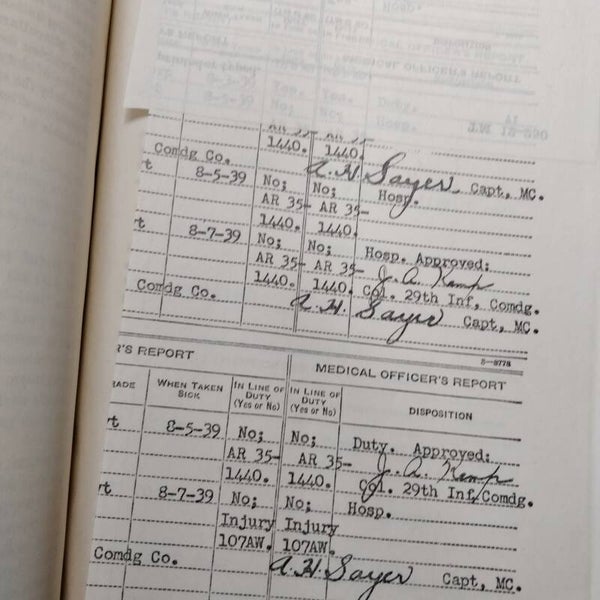 1440. 1440.
Comdg Co. A. H. Sayer Capt, MC.
8-5-39 No; No; Hosp.
AR 35- AR 35-
1440. 1440.
8-7-39 No; No; Hosp. Approved:
AR 35- AR 35- J. A. Kemp
1440. 1440. Col. 29th Inf, Comdg.
Comdg Co. A. H. Sayer Capt, MC.
3—8778
R'S REPORT MEDICAL OFFICER'S REPORT
RADE WHEN TAKEN SICK IN LINE OF DUTY (Yes or No) IN LINE OF DUTY (Yes or No) DISPOSITION
rt 8-5-39 No; No; Duty. Approved:
AR 35- AR 35- J. A. Kemp
1440. 1440. Col. 29th Inf, Comdg.
rt 8-7-39 No; No; Hosp.
Injury Injury
107AW. 107AW.
Comdg Co. A. H. Sayer Capt, MC.